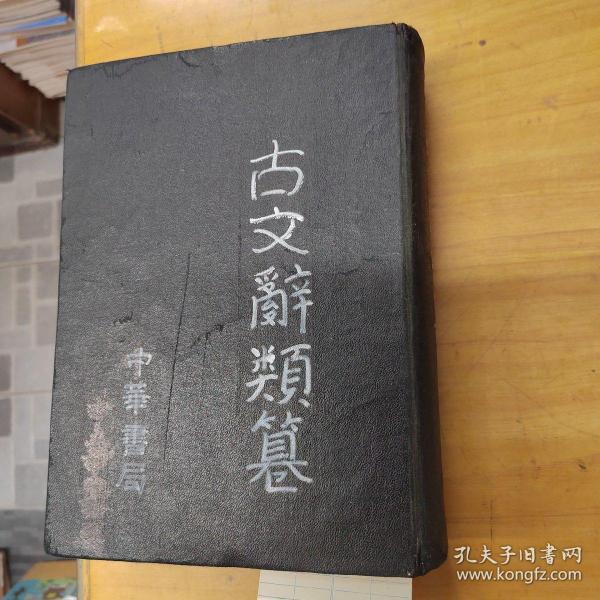 古文辭類篹
中華書局
孔夫子旧书网
www.kongfz.com